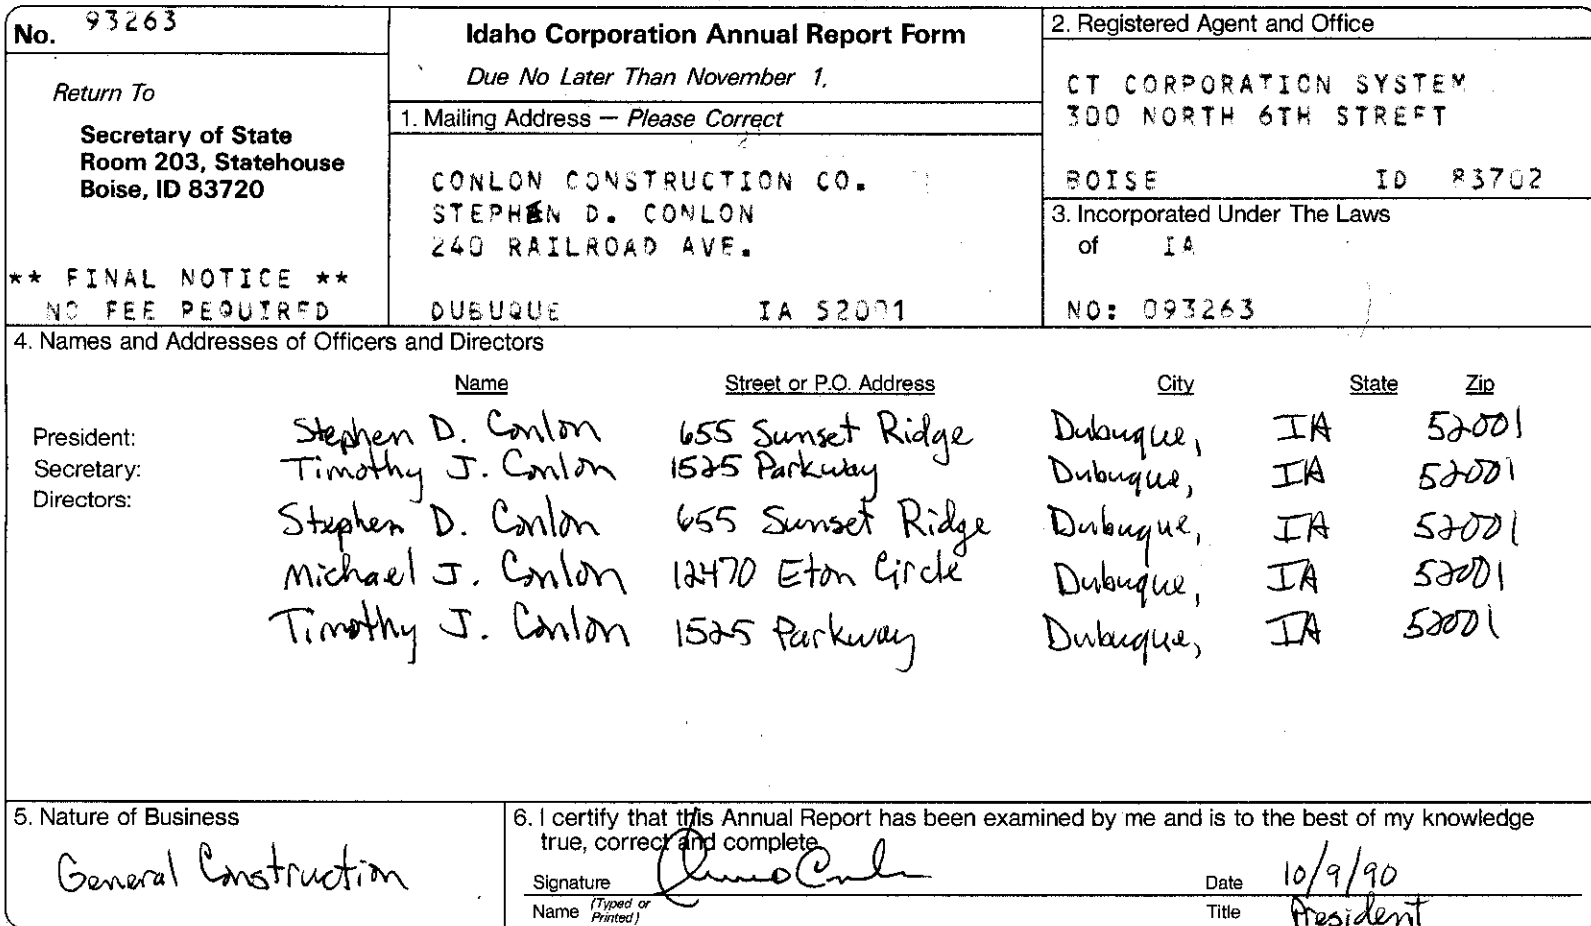 No. 93263
Return To
Secretary of State
Room 203, Statehouse
Boise, ID 83720
** FINAL NOTICE **
NO FEE REQUIRED
Idaho Corporation Annual Report Form
Due No Later Than November 1,
1. Mailing Address — Please Correct
CONLON CONSTRUCTION CO.
STEPHEN D. CONLON
240 RAILROAD AVE.
DUBUQUE IA 52001
2. Registered Agent and Office
CT CORPORATION SYSTEM
300 NORTH 6TH STREET
BOISE ID 83702
3. Incorporated Under The Laws
of IA
NO: 093263
4. Names and Addresses of Officers and Directors
Name Street or P.O. Address City State Zip
President: Stephen D. Conlon 655 Sunset Ridge Dubuque, IA 52001
Secretary: Timothy J. Conlon 1525 Parkway Dubuque, IA 52001
Directors:
Stephen D. Conlon 655 Sunset Ridge Dubuque, IA 52001
Michael J. Conlon 12470 Eton Circle Dubuque, IA 52001
Timothy J. Conlon 1525 Parkway Dubuque, IA 52001
5. Nature of Business
General Construction
6. I certify that this Annual Report has been examined by me and is to the best of my knowledge
true, correct and complete.
Signature Date 10/9/90
Name (Typed or Printed) Title President